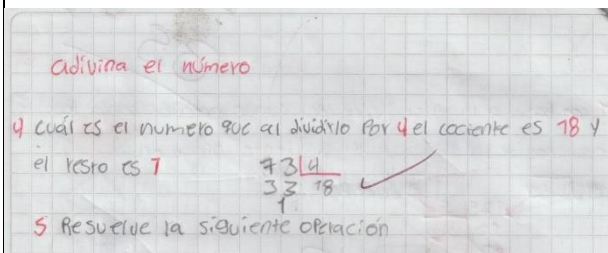 adivina el número
4 cuál es el numero que al dividirlo Por 4 el cociente es 18 y
el resto es 1
73 4
33 18
1
5 Resuelve la siguiente operación